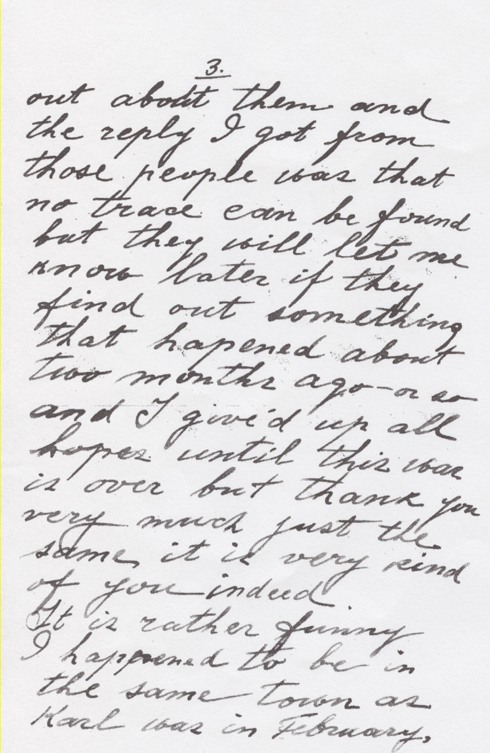 3.
out about them and
the reply I got from
those people was that
no trace can be found
but they will let me
know later if they
find out something
that hapened about
two months ago - or so
and I give'd up all
hopes until this war
is over but thank you
very much just the
same, it is very kind
of you indeed
It is rather funny
I happened to be in
the same town as
Karl was in February,